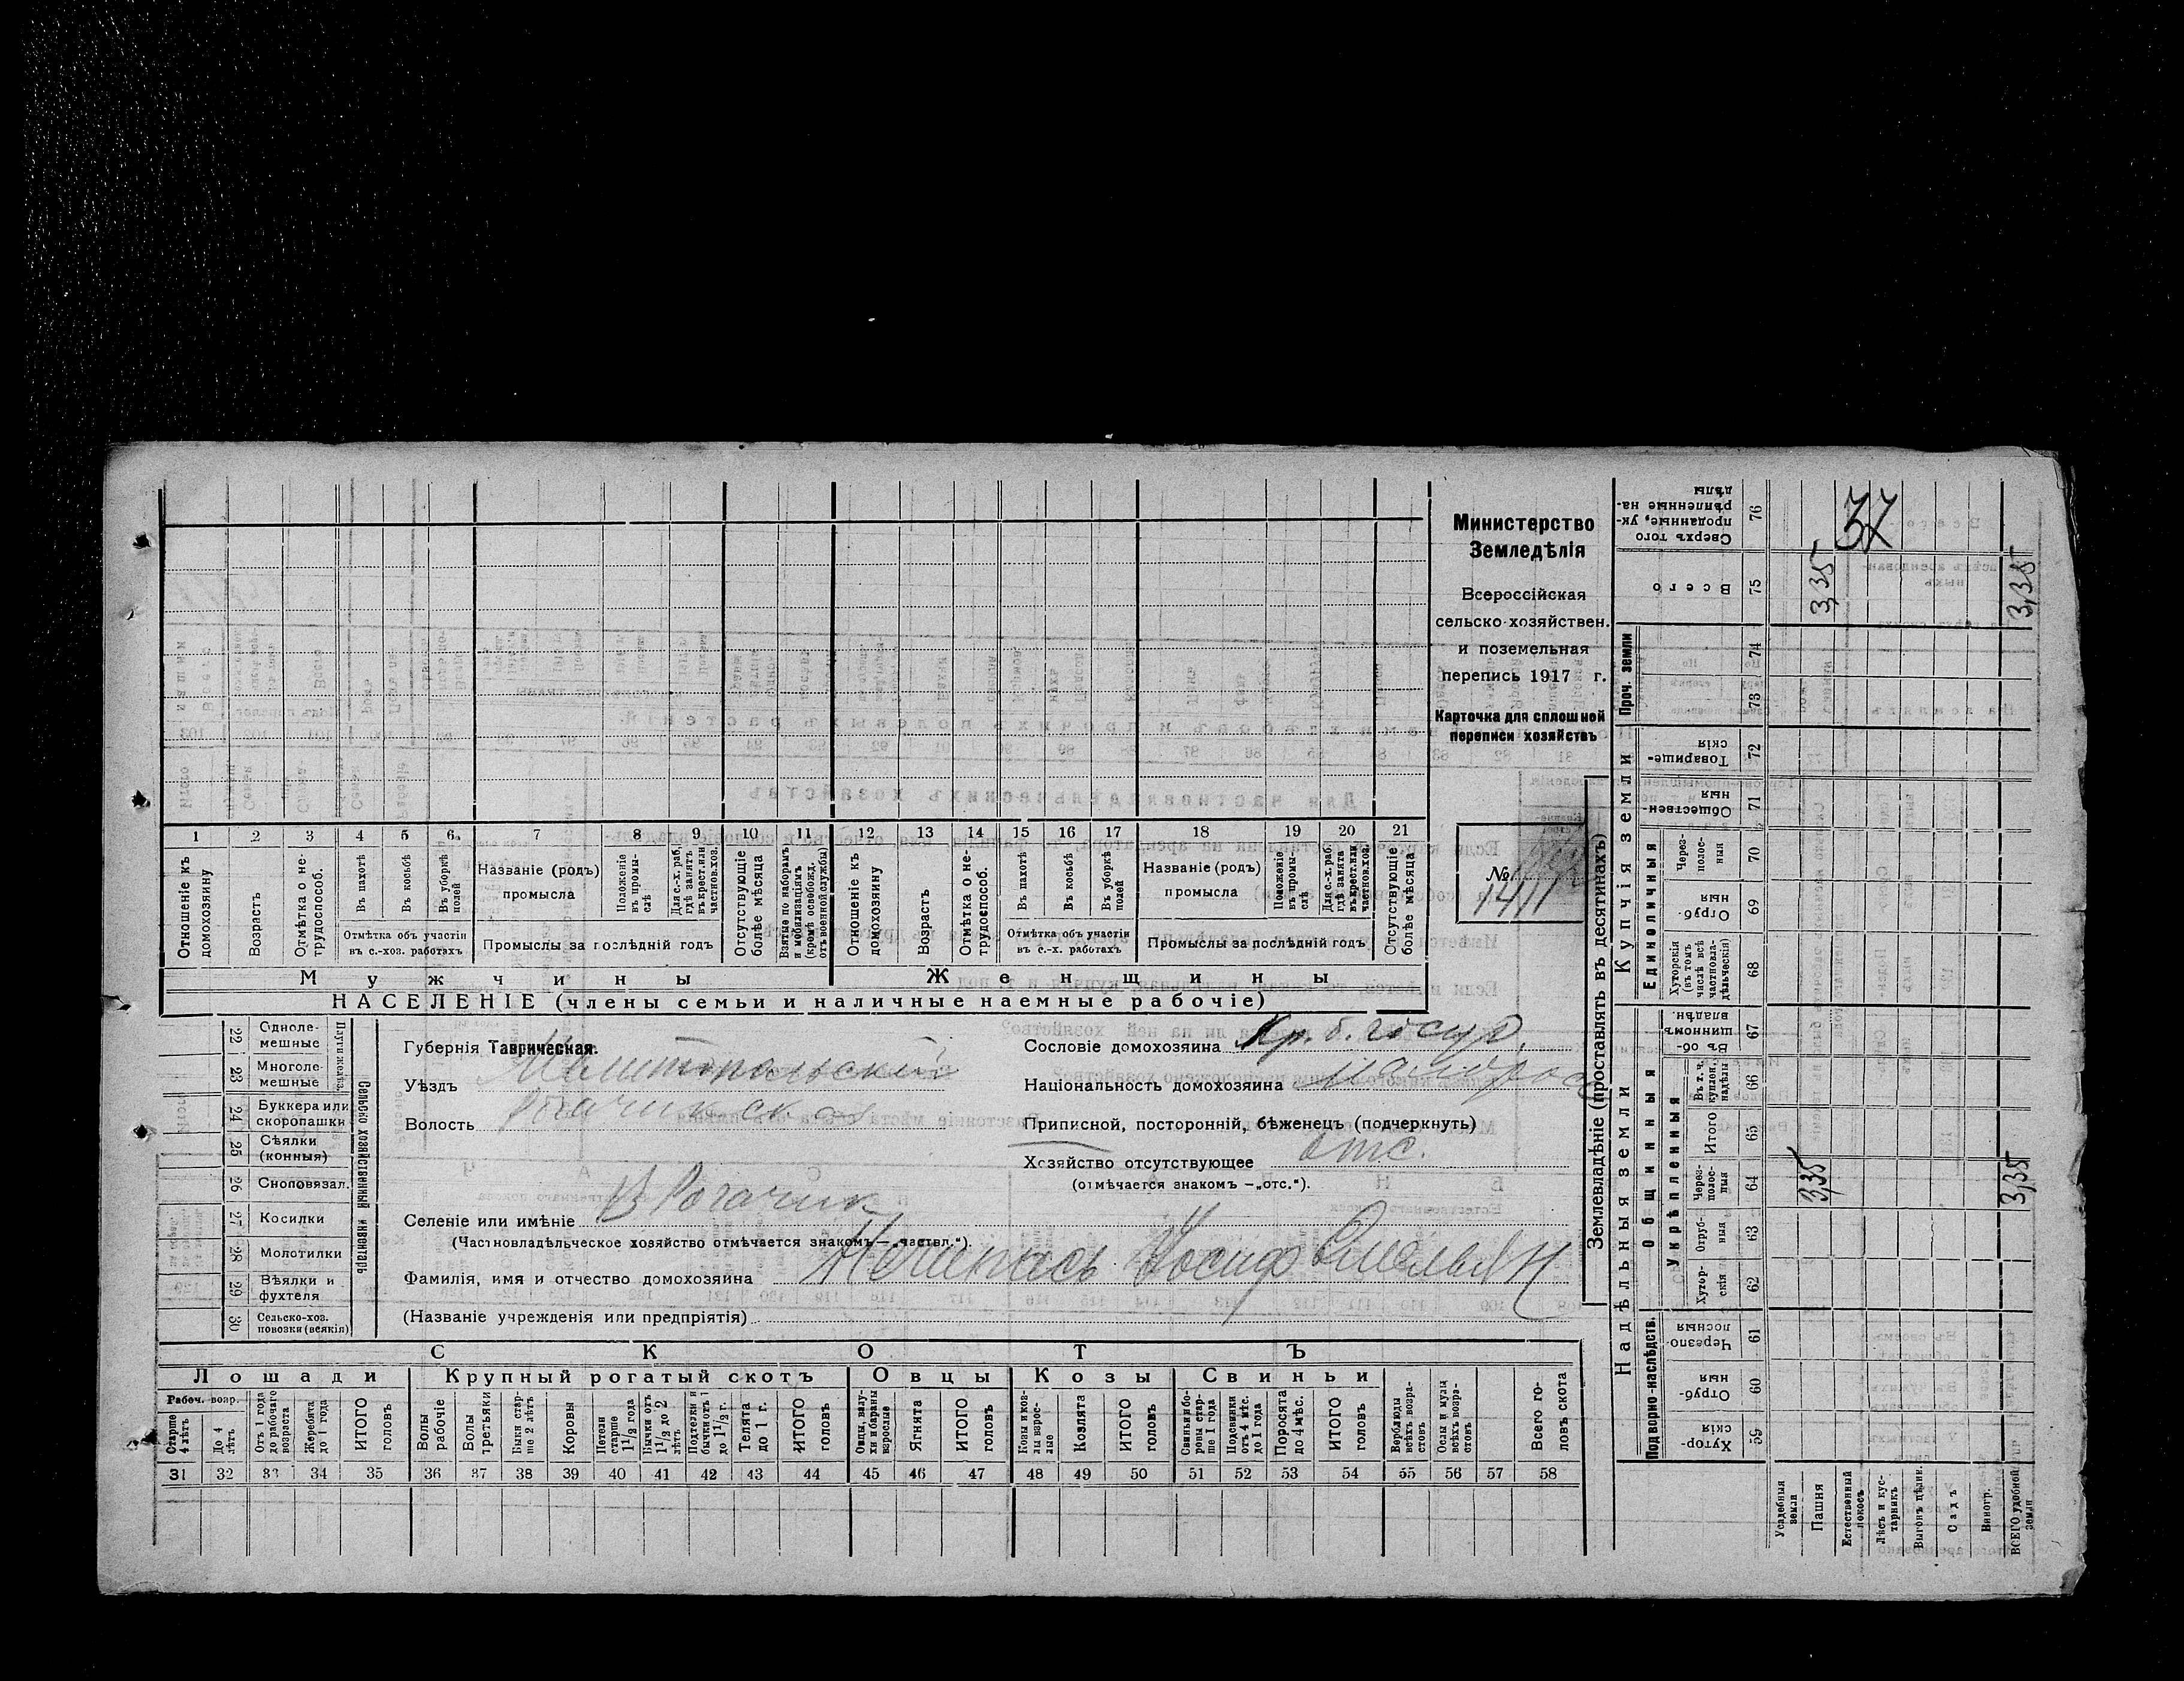 Министерство
Земледѣлія
Всероссійская
сельско-хозяйствен.
и поземельная
перепись 1917 г.
Карточка для сплошной
переписи хозяйствъ
№
1411
1 2 3 4 5 6 7 8 9 10 11 12 13 14 15 16 17 18 19 20 21
Отношеніе къ домохозяину
Возрастъ
Отмѣтка о нетрудоспособ.
Въ пахотѣ
Въ косьбѣ
Въ уборкѣ полей
Отмѣтка объ участіи
въ с.-хоз. работахъ
Названіе (родъ)
промысла
Положеніе въ промыслѣ
Для с.-х. раб. гдѣ занятъ въ крест. или частнов. хоз.
Промыслы за послѣдній годъ
Отсутствующіе болѣе мѣсяца
Взятые по наборамъ и мобилизаціямъ (кромѣ освобожд. отъ военной службы)
Отношеніе къ домохозяину
Возрастъ
Отмѣтка о нетрудоспособ.
Въ пахотѣ
Въ косьбѣ
Въ уборкѣ полей
Отмѣтка объ участіи
въ с.-х. работахъ
Названіе (родъ)
промысла
Положеніе въ промыслѣ
Для с.-х. раб. гдѣ занята въ крест. или частнов. хоз.
Промыслы за послѣдній годъ
Отсутствующіе болѣе мѣсяца
Мужчины Женщины
НАСЕЛЕНІЕ (члены семьи и наличные наемные рабочіе)
22 Одноле-
мешные
23 Многоле-
мешные
24 Буккера или
скоропашки
25 Сѣялки
(конныя)
26 Сноповязал.
27 Косилки
28 Молотилки
29 Вѣялки и
фухтеля
30 Сельско-хоз.
повозки (всякія)
Сельско хозяйственный инвентарь
Губернія Таврическая.
Уѣздъ Мелитопольский
Волость Рогачикская
Селеніе или имѣніе В Рогачик
(Частновладѣльческое хозяйство отмѣчается знакомъ—„частвл.“).
Фамилія, имя и отчество домохозяина Нечипась Иосиф Омельян
(Названіе учрежденія или предпріятія)
Сословіе домохозяина Кр. б. госуд.
Національность домохозяина малорос
Приписной, посторонній, бѣженецъ (подчеркнуть)
Хозяйство отсутствующее отс.
(отмѣчается знакомъ —„отс.“).
СКОТЪ
Лошади Крупный рогатый скотъ Овцы Козы Свиньи
Рабоч. возр.
Старше 4 лѣтъ
До 4 лѣтъ
Отъ 1 года до рабочаго возраста
Жеребята до 1 года
ИТОГО головъ
Волы рабочіе
Волы третьяки
Быки старше 2 лѣтъ
Коровы
Нетели старше 1½ года
Бычки отъ 1½ до 2 лѣтъ
Подтелки и бычки отъ 1 до 1½ г.
Телята до 1 г.
ИТОГО головъ
Овцы, валухи и бараны взрослые
Ягнята
ИТОГО головъ
Козы и козлы взрослые
Козлята
ИТОГО головъ
Свиньи и боровы старше 1 года
Подсвинки отъ 4 мѣс. до 1 года
Поросята до 4 мѣс.
ИТОГО головъ
Верблюды всѣхъ возрастовъ
Ослы и мулы всѣхъ возрастовъ
Всего головъ скота
31 32 33 34 35 36 37 38 39 40 41 42 43 44 45 46 47 48 49 50 51 52 53 54 55 56 57 58
Землевладѣніе (проставлять въ десятинахъ)
Надѣльныя земли
Купчія земли
Проч. земли
Подворно-наслѣдств.
Общинныя
Укрѣпленныя
Единоличныя
Хуторскія 59
Отрубныя 60
Черезполосныя 61
Хуторскія 62
Отрубныя 63
Черезполосныя 64
Итого 65
Въ т. ч. куплен. надѣлы 66
Въ общинномъ владѣн. 67
Хуторскія (въ томъ числѣ всѣ частновладѣльческія) 68
Отрубныя 69
Черезполосныя 70
Общественныя 71
Товарищескія 72
73
74
Всего 75
Сверхъ того проданные, укрѣпленные надѣлы 76
Усадебныя земли
Пашня
Естественный покосъ
Лѣсъ и кустарникъ
Выгонъ цѣлин.
Садъ
Виногр.
ВСЕГО удобной земли
37
3,35
3,35
3,35
3,35